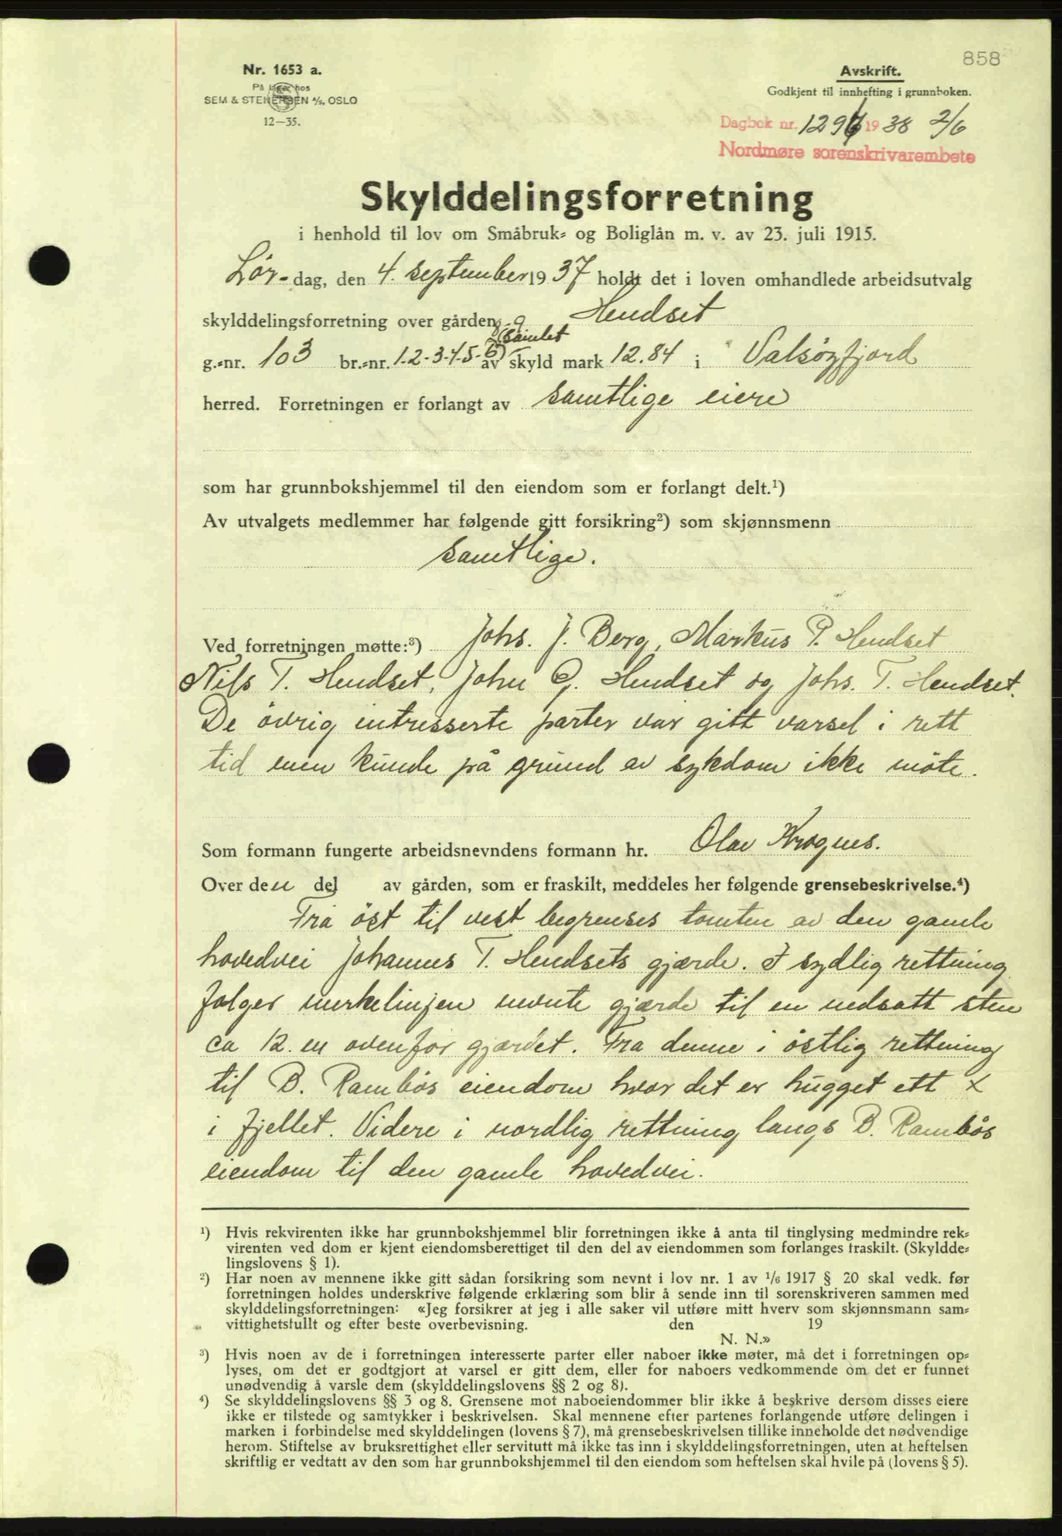 858
Nr. 1653 a.
På lager hos
SEM & STENERSEN A/S, OSLO
12—35.
Avskrift.
Godkjent til innhefting i grunnboken.
Dagbok nr. 1296 1938 2/6
Nordmøre sorenskrivarembete
Skylddelingsforretning
i henhold til lov om Småbruk= og Boliglån m. v. av 23. juli 1915.
Lør-dag, den 4. september 1937 holdt det i loven omhandlede arbeidsutvalg
skylddelingsforretning over gården Hendset
(samlet
g.=nr. 103 br.=nr. 1-2-3-4-5-6) av skyld mark 12.84 i Valsøyfjord
herred. Forretningen er forlangt av samtlige eiere
som har grunnbokshjemmel til den eiendom som er forlangt delt.¹)
Av utvalgets medlemmer har følgende gitt forsikring²) som skjønnsmenn
samtlige.
Ved forretningen møtte:³) Johs. J. Berg, Markus P. Hendset
Nils T. Hendset, John G. Hendset og Johs. T. Hendset.
De øvrig intresserte parter var gitt varsel i rett
tid men kunde på grund av sykdom ikke møte.
Som formann fungerte arbeidsnevndens formann hr. Olav Krognes.
Over den del av gården, som er fraskilt, meddeles her følgende grensebeskrivelse.⁴)
Fra øst til vest begrenses tomten av den gamle
hovedvei Johannes T. Hendsets gjærde. I sydlig rettning
følger merkelinjen nevnte gjærde til en nedsatt sten
ca 12. m ovenfor gjærdet. Fra denne i østlig rettning
til B. Rambös eiendom hvor det er hugget ett x
i fjellet. Videre i nordlig rettning langs B. Rambös
eiendom til den gamle hovedvei.
¹) Hvis rekvirenten ikke har grunnbokshjemmel blir forretningen ikke å anta til tinglysing medmindre rek=
virenten ved dom er kjent eiendomsberettiget til den del av eiendommen som forlanges fraskilt. (Skyldde=
lingslovens § 1).
²) Har noen av mennene ikke gitt sådan forsikring som nevnt i lov nr. 1 av 1/6 1917 § 20 skal vedk. før
forretningen holdes underskrive følgende erklæring som blir å sende inn til sorenskriveren sammen med
skylddelingsforretningen: «Jeg forsikrer at jeg i alle saker vil utføre mitt hverv som skjønnsmann sam=
vittighetsfullt og efter beste overbevisning. den 19
N. N.»
³) Hvis noen av de i forretningen interesserte parter eller naboer ikke møter, må det i forretningen op=
lyses, om det er godtgjort at varsel er gitt dem, eller for naboers vedkommende om det er funnet
unødvendig å varsle dem (skylddelingslovens §§ 2 og 8).
⁴) Se skylddelingslovens §§ 3 og 8. Grensene mot naboeiendommer blir ikke å beskrive dersom disses eiere
ikke er tilstede og samtykker i beskrivelsen. Skal mennene efter partenes forlangende utføre delingen i
marken i forbindelse med skylddelingen (lovens § 7), må grensebeskrivelsen tillike inneholde det nødvendige
herom. Stiftelse av bruksrettighet eller servitutt må ikke tas inn i skylddelingsforretningen, uten at heftelsen
skriftlig er vedtatt av den som har grunnbokshjemmel til den eiendom som heftelsen skal hvile på (lovens § 5).